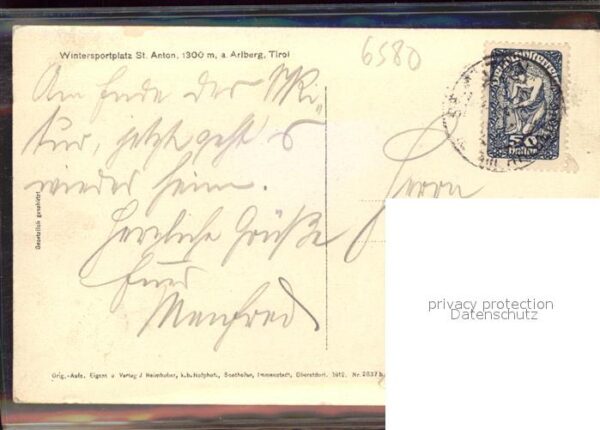 Wintersportplatz St. Anton, 1300 m, a. Arlberg, Tirol
6580
Am Ende der Ski-
tur, jetzt geht's
wieder heim.
Herzliche Grüße
Euer
Manfred
Herrn
50
Gesetzlich geschützt
privacy protection
Datenschutz
Orig.-Aufn. Eigem u. Verlag J Heimhuber, k. b. Hofphot., Sonthofen, Immenstadt, Oberstdorf. 1912. Nr. 2637 b.